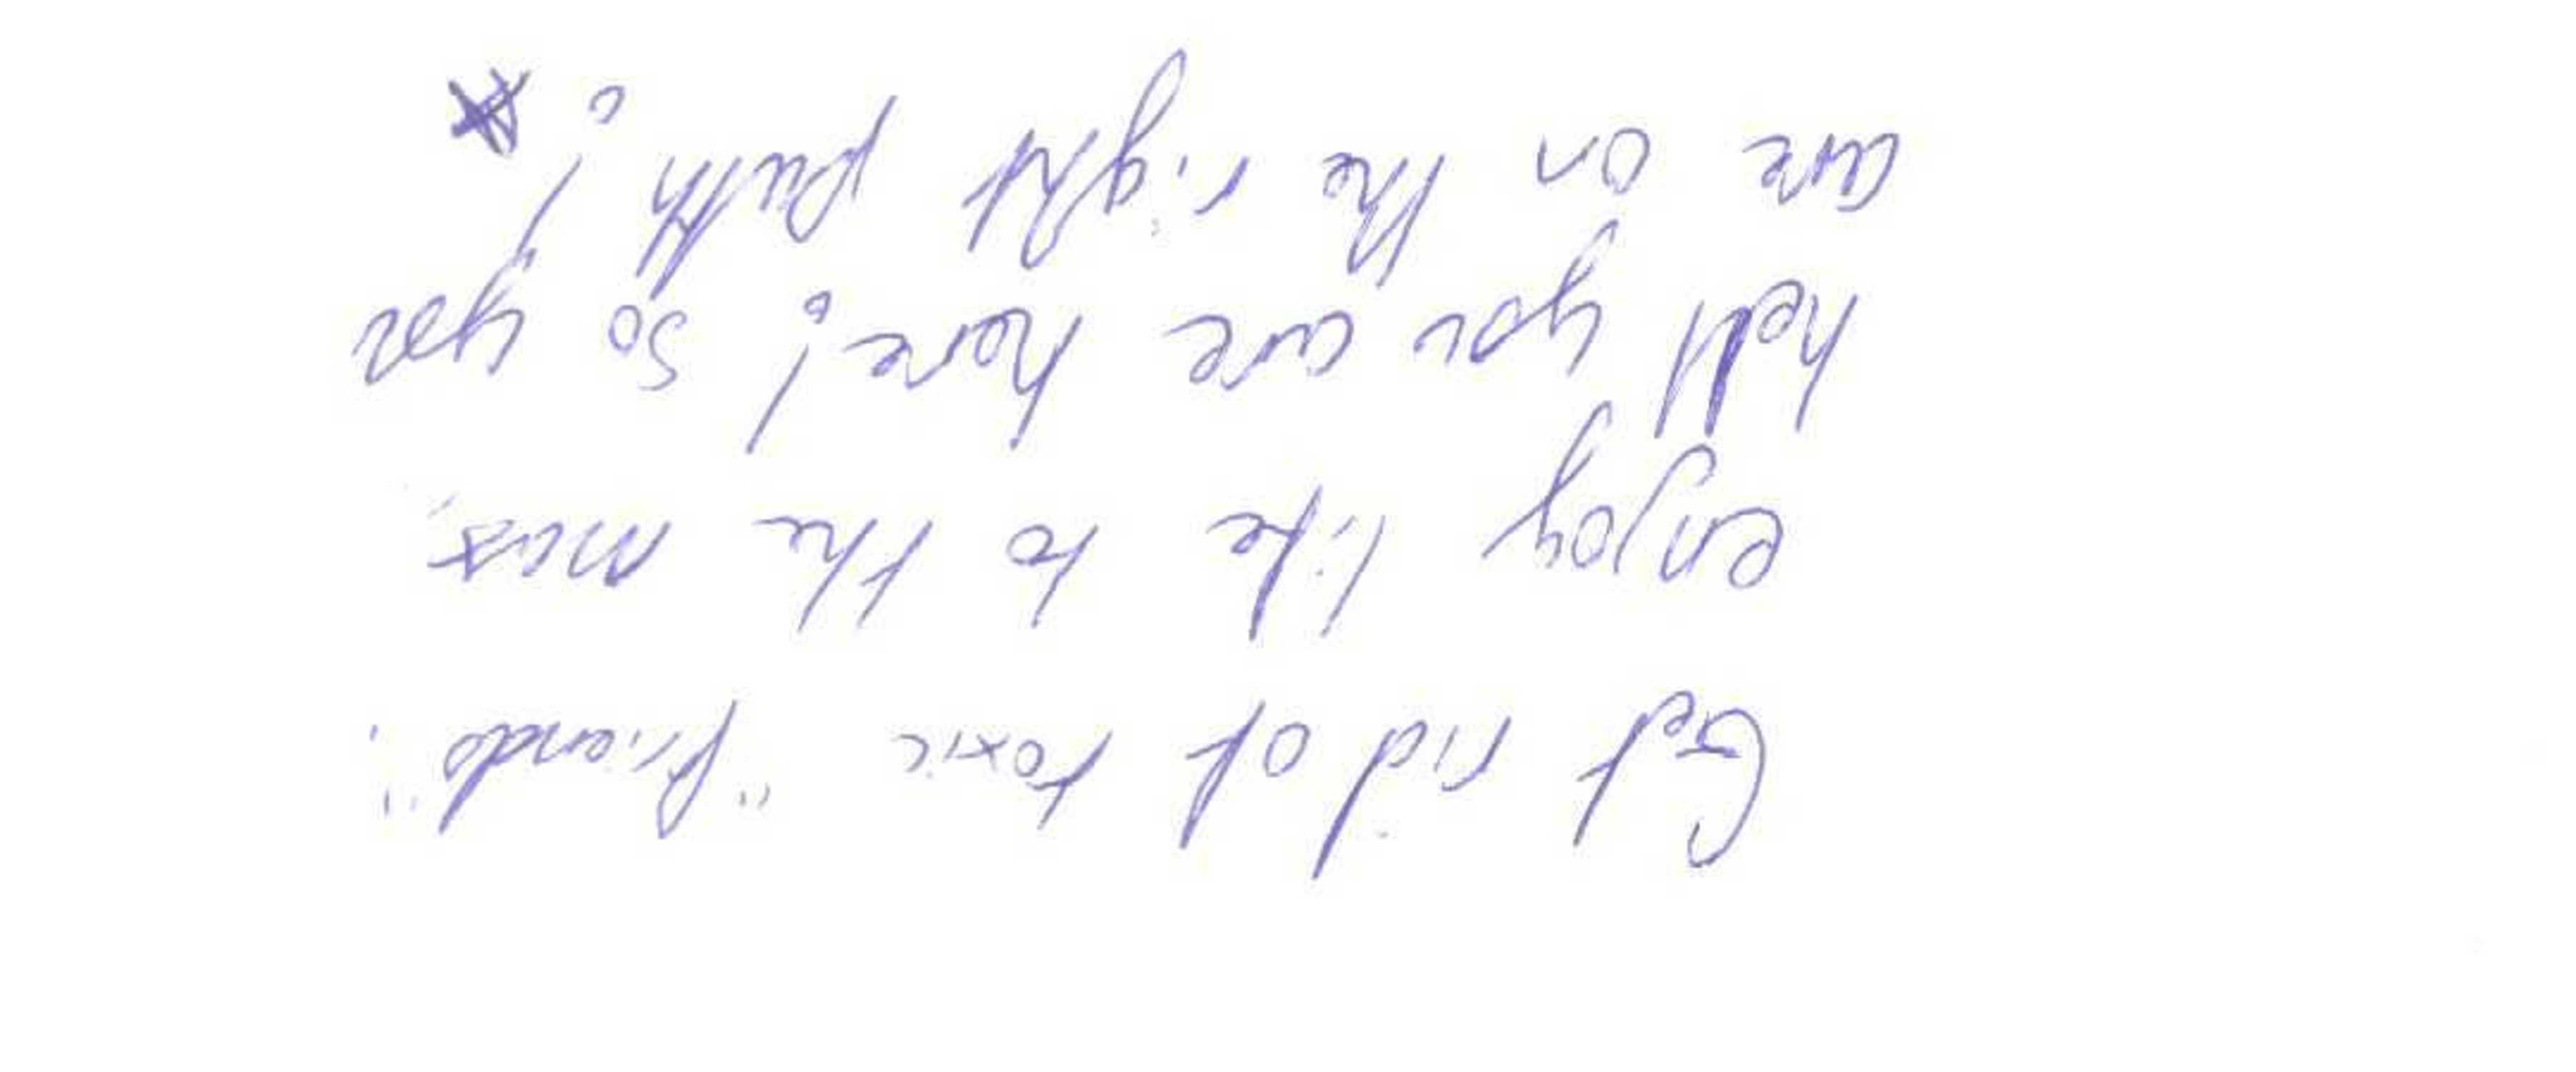 Get rid of toxic "friends",
enjoy life to the max,
hell you are here! so you
are on the right path!